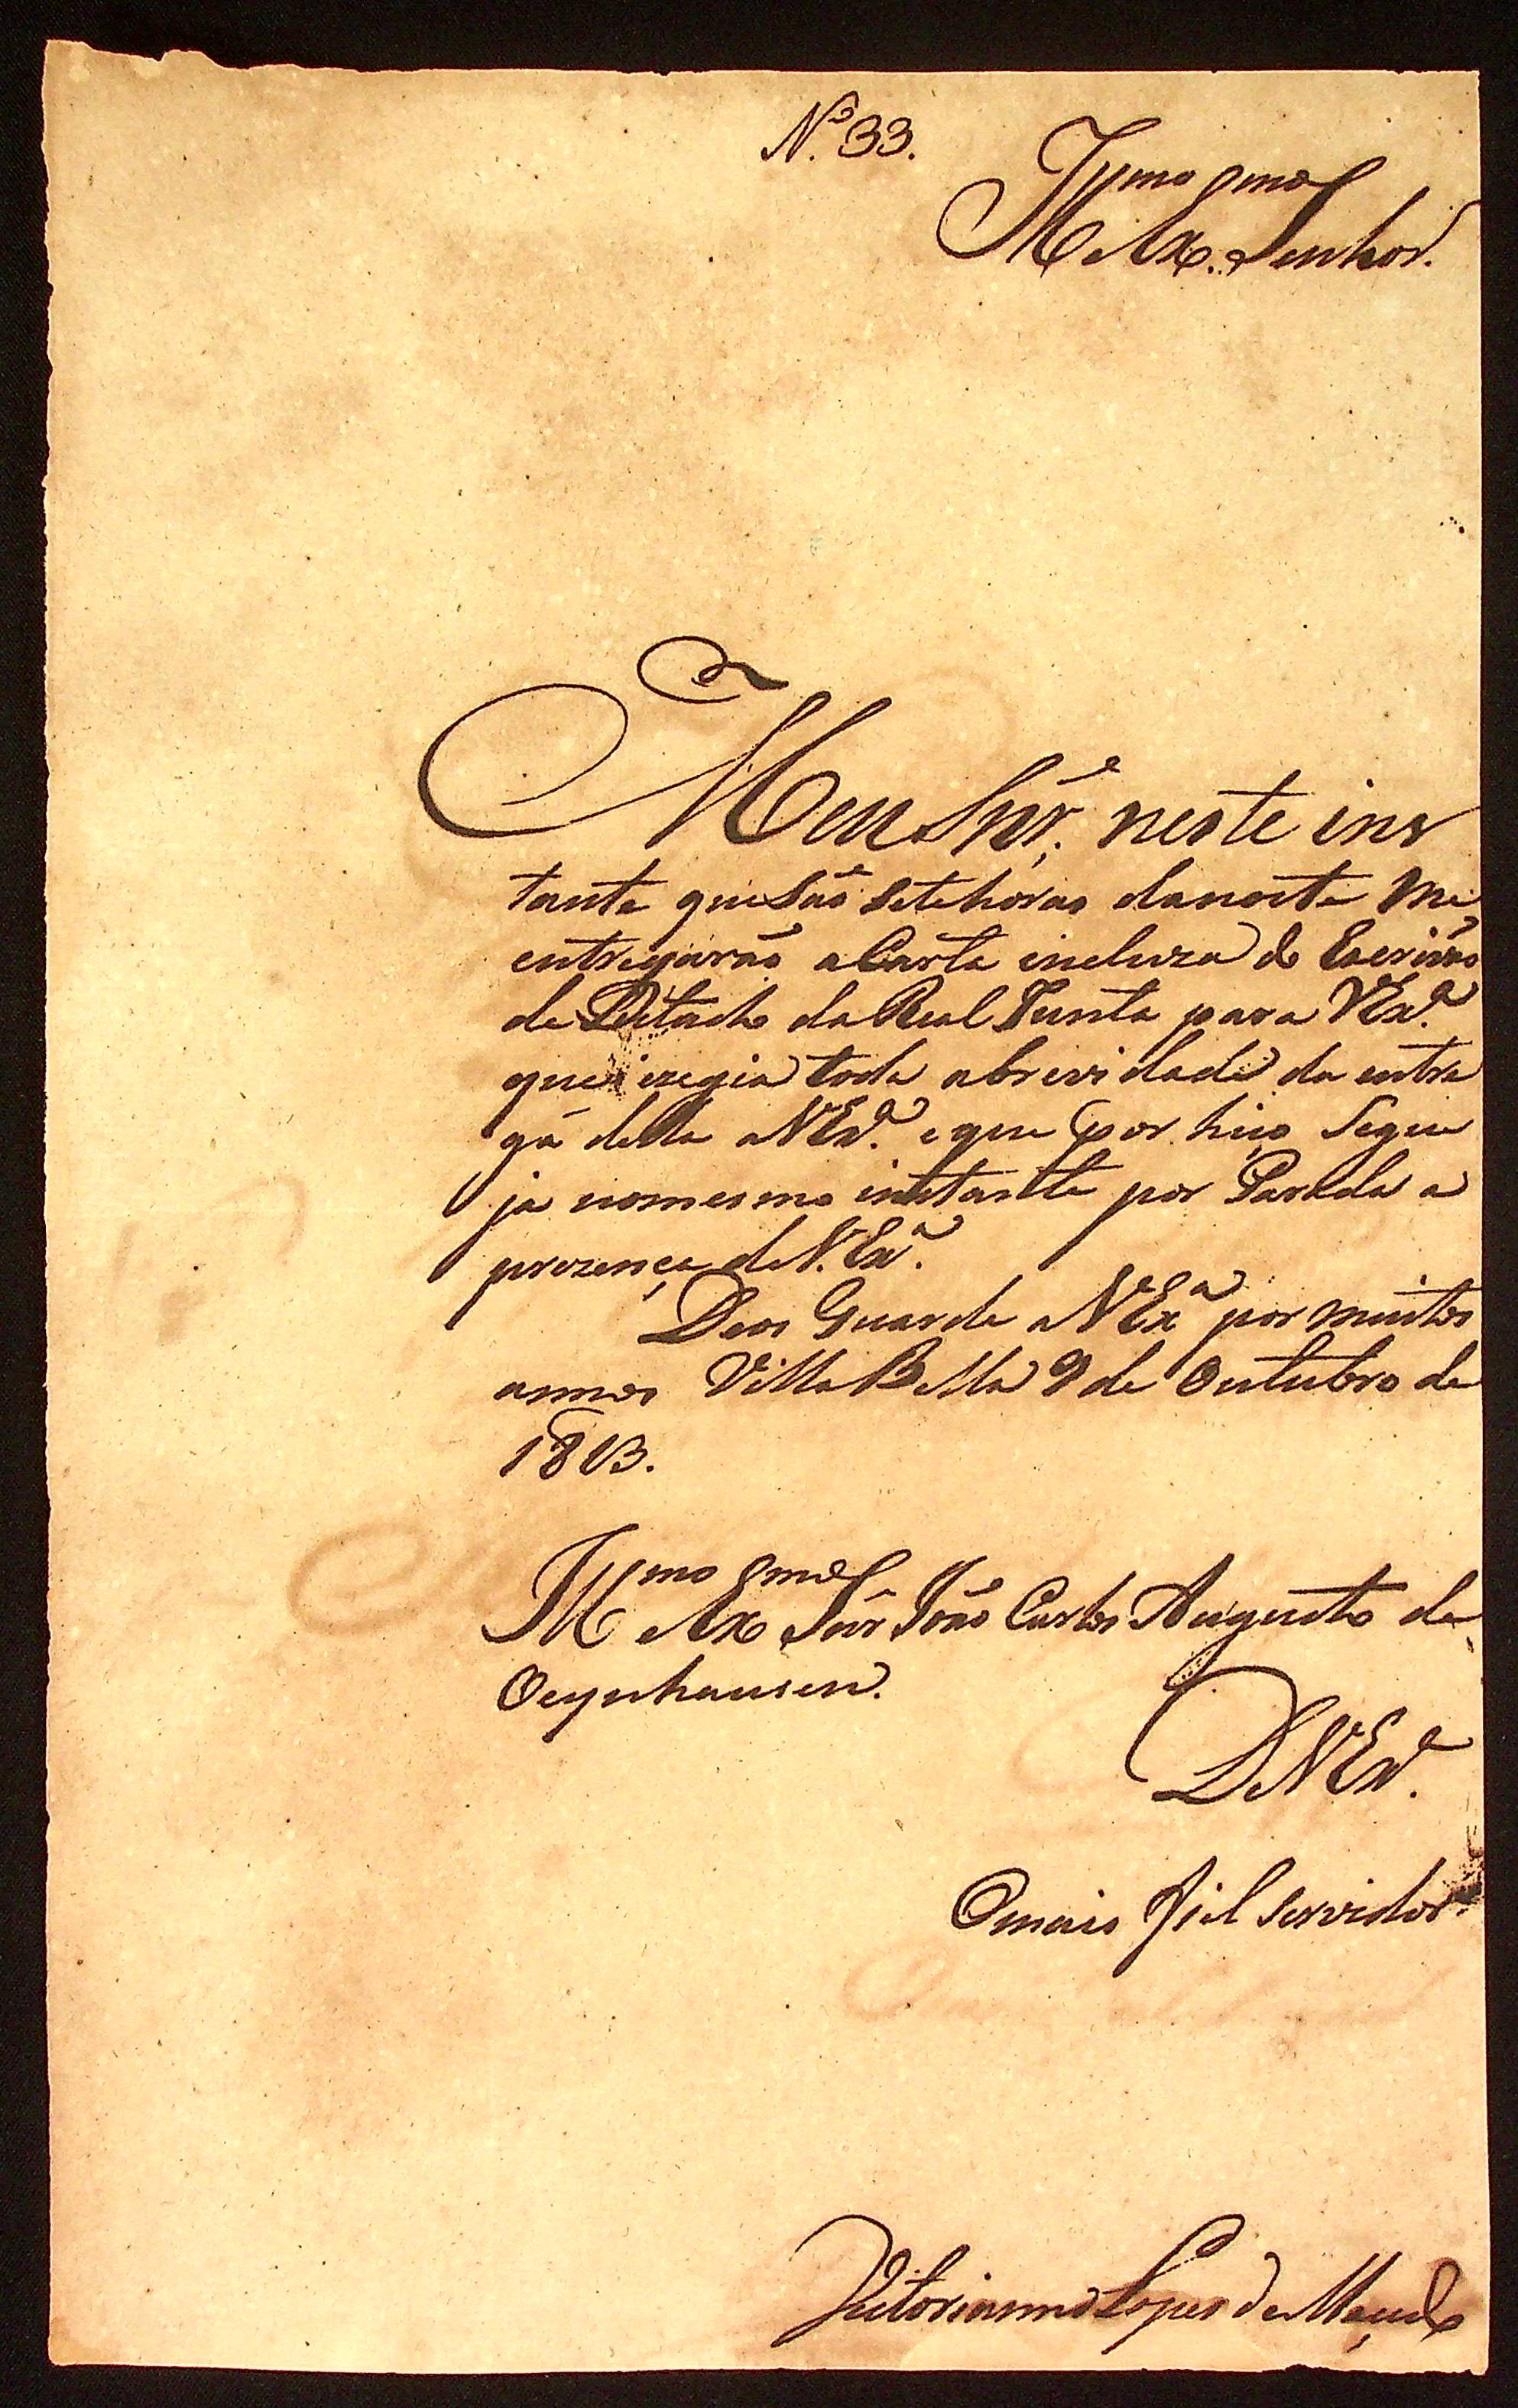 N.º 33.
Ill.mo e Ex.mo Senhor.
Meu Snr. neste ins
tante que Saõ Sete horas danoite me
entregaraõ a Carta incluza do Escrivaõ
da Real Junta para VEx.ª
que exegia toda abrevidade da entre
ga della a VEx.ª e que por hiço Segue
ja nomesmo instante por Parada a
prezença de V.Ex.ª
Deos Guarde a VEx.ª por muitos
annos Villa Bella 9 de Outubro de
1813.
Ill.mo e Ex.mo Snr João Carlos Augusto de
Oeynhausen.
De VEx.ª
Omais fiel servidor
Victorianno Lopes de Maçedo